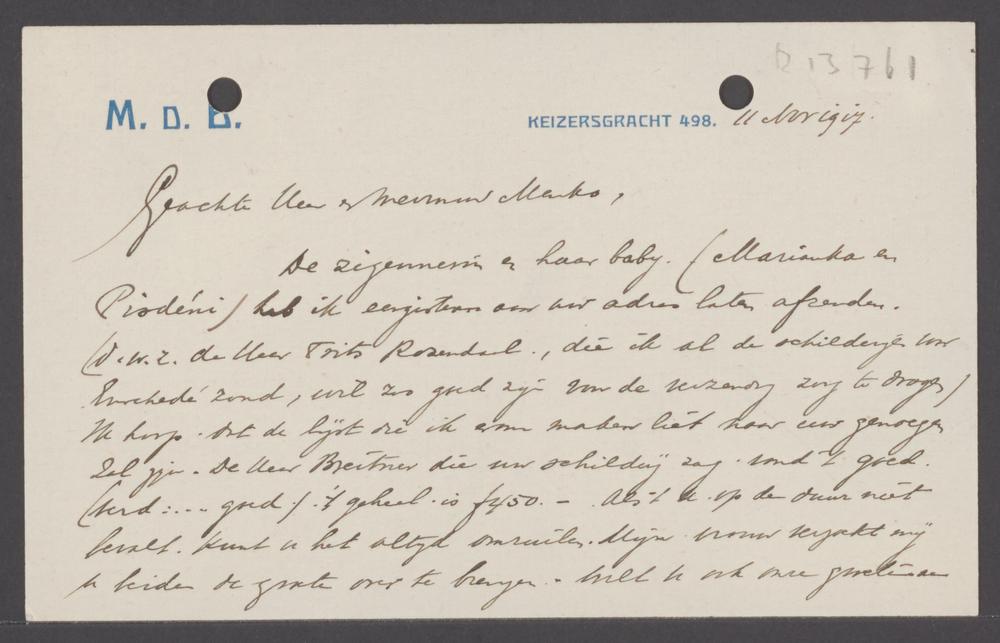 R 13761
M. D. B.
KEIZERSGRACHT 498. 11 Nov 1917.
Geachte Heer en Mevrouw Menko,
De zigeunerin en haar baby. (Marianka en
Pirodéni) heb ik eergisteren aan uw adres laten afzenden.
(d.w.z. de Heer Frits Rosendaal., die ik al de schilderijen voor
Enschedé zond, wil zoo goed zijn voor de verzending zorg te dragen)
Ik hoop dat de lijst die ik erom maken liet naar uw genoegen
zal zijn. De Heer Breitner die uw schilderij zag vond 't goed.
goed.) 't geheel is f450.- Als 't u op den duur niet
bevalt. kunt u het altijd omruilen. Mijn vrouw verzoekt mij
u beiden de groeten over te brengen. - Wilt u ook onze